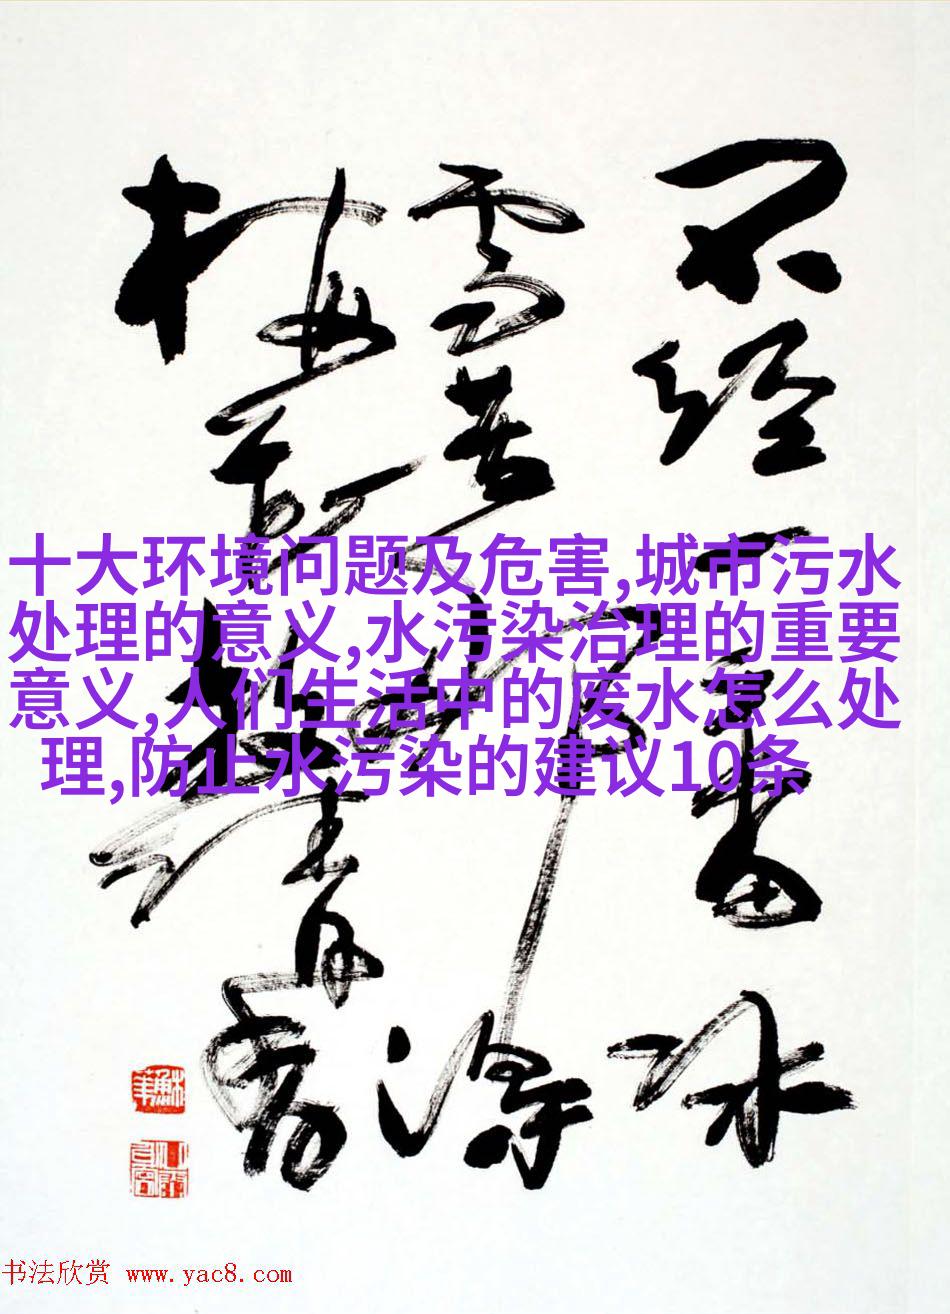 不经一番冰
雪苦那得
梅花放清香
十大环境问题及危害,城市污水
处理的意义,水污染治理的重要
意义,人们生活中的废水怎么处
理,防止水污染的建议10条
书法欣赏 www.yac8.com